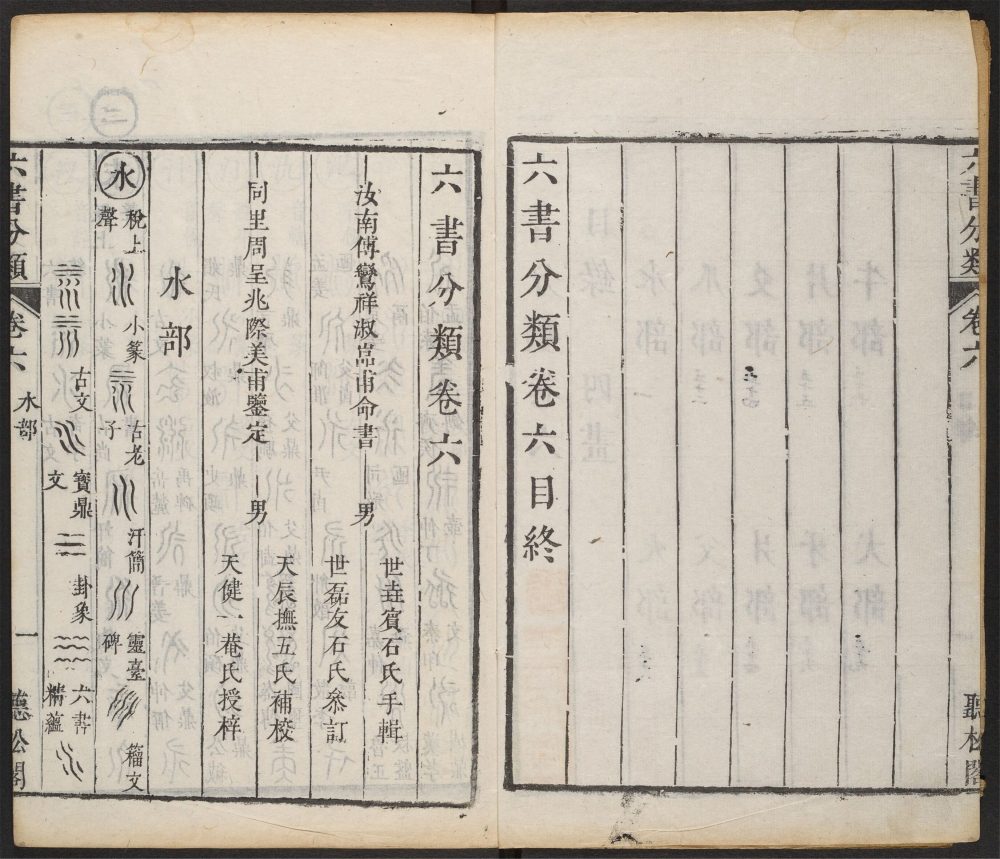 六書分類
卷六
聽松閣
六書分類卷六目終
六書分類卷六
汝南傅鸞祥淑嵩甫命書
男
世垚賓石氏手輯
世磊友石氏叅訂
同里周呈兆際美甫鑒定
男
天辰撫五氏補校
天健一菴氏授梓
水部
水
稅上聲
小篆
古老子
汗簡
靈臺碑
籀文
古文
寶鼎文
卦象
六書精蘊
六書分類
卷六
水部
一
聽松閣
三